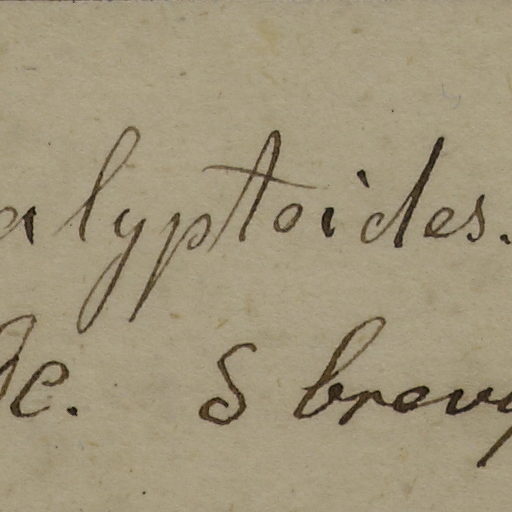 alyptoides.
c. S brevy